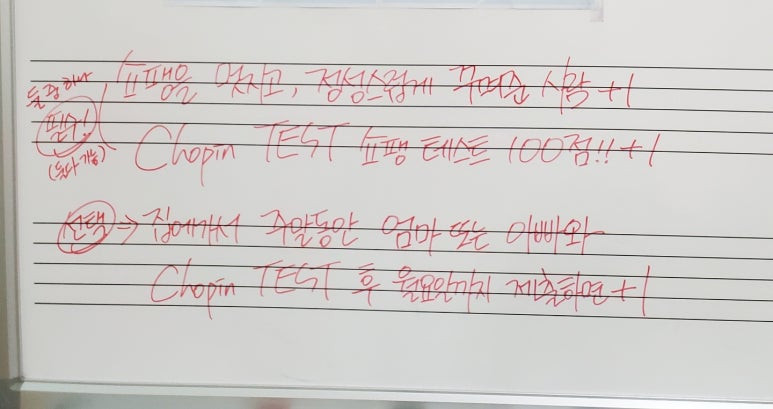 둘 중 하나
필수!
(둘다 가능)
쇼팽을 멋지고, 정성스럽게 꾸며준 사람 +1
Chopin TEST 쇼팽 테스트 100점!! +1
선택 → 집에가서 주말동안 엄마 또는 아빠와
Chopin TEST 후 월요일까지 제출하면 +1